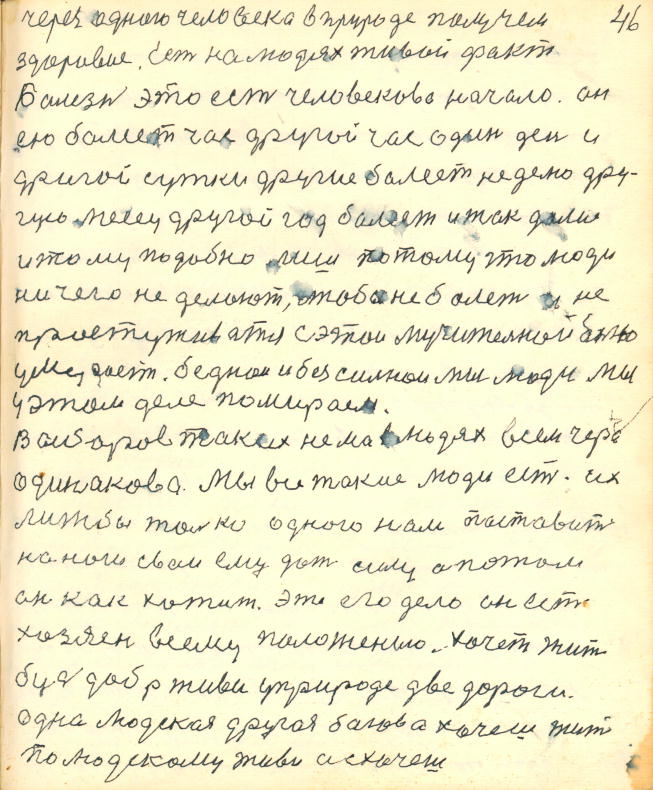 46
через одного человека в природе получем
здоровие. Ест на людях живой факт
Болезн это ест человекова начало. он
ею болеет час другой час один ден и
дригой сутки другие балеет неделю дру-
гую месец другой год балеет итак дали
итому подобно потому што люди
ничего не делоют, штоба не болет и не
простуживатя с этой мучителной болю
умераест. бедной и без силной мы люди мы
у этом деле помираем.
таких нема в людях всем чера
одинакова. Мы все такие люди ест. их
лижбы толко одного нам поставит
на ноги сваи ему дат силу а потом
он как хотит. Эта его дело он ест
хозяен всему положению. хочет жит
буд добр живи уприроде две дороги.
одна людская другая богова хочеш жит
по людскому живи а схочеш